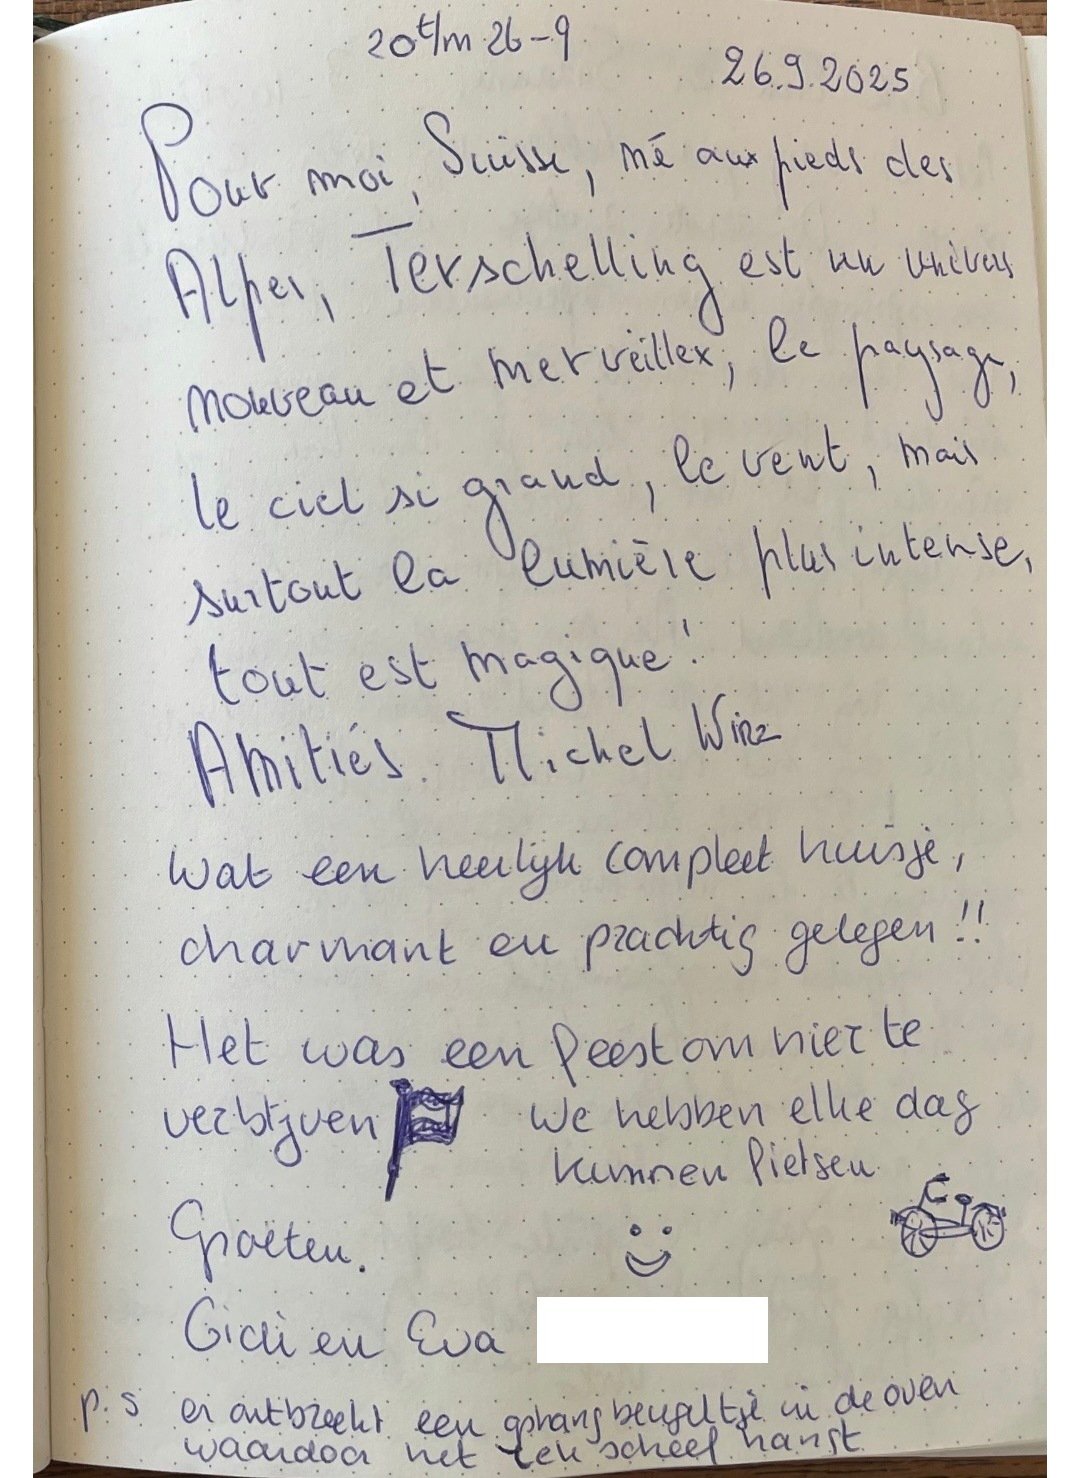 20 t/m 26-9
26.9.2025
Pour moi, Suisse, né aux pieds des
Alpes, Terschelling est un univers
nouveau et merveillex, le paysage,
le ciel si grand, le vent, mais
surtout la lumière plus intense,
tout est magique!
Amitiés. Michel Wirz
Wat een heerlijk compleet huisje,
charmant en prachtig gelegen!!
Het was een feest om hier te
verblijven
We hebben elke dag
kunnen fietsen
Groeten.
en Eva
p.s. er ontbreekt een ophangbeugeltje in de oven
waardoor het scheef hangt